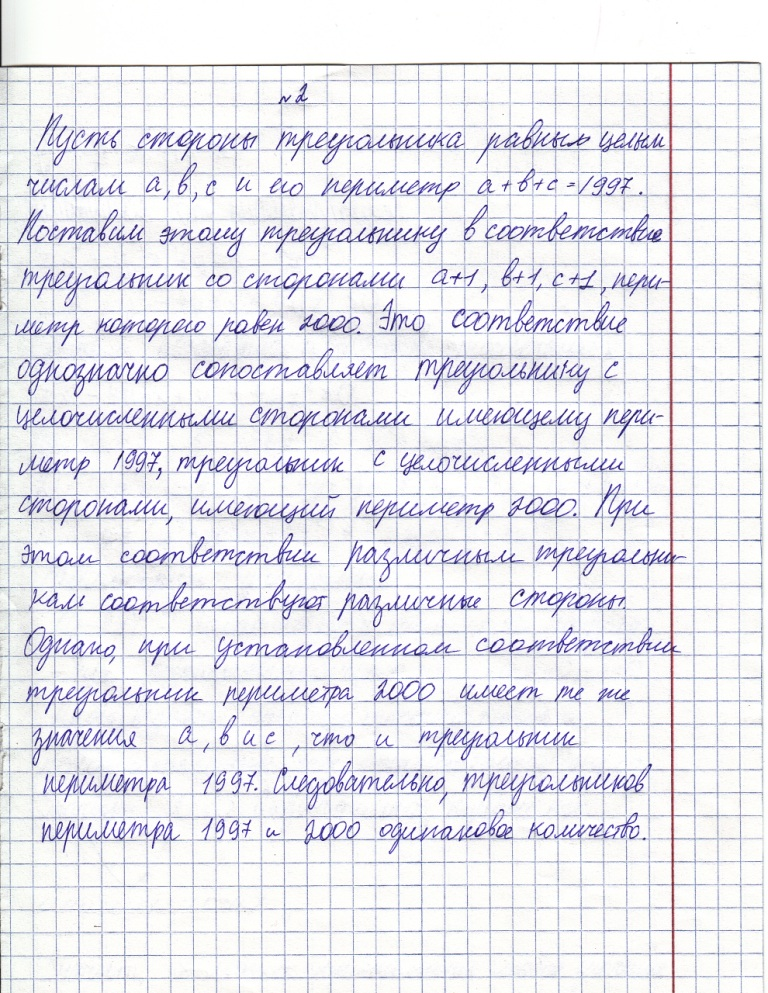 №2
Пусть стороны треугольника равным целым
числам a, в, с и его периметр a+в+c=1997.
Поставим этому треугольнику в соответствие
треугольник со сторонами a+1, в+1, c+1, пери-
метр которого равен 2000. Это соответствие
однозначно сопоставляет треугольнику с
целочисленными сторонами имеющему пери-
метр 1997, треугольник с целочисленными
сторонами, имеющий периметр 2000. При
этом соответствии различным треугольни-
кам соответствуют различные стороны.
Однако, при установленном соответствии
треугольник периметра 2000 имеет те же
значения a, в и с, что и треугольник
периметра 1997. Следовательно, треугольников
периметра 1997 и 2000 одинаковое количество.